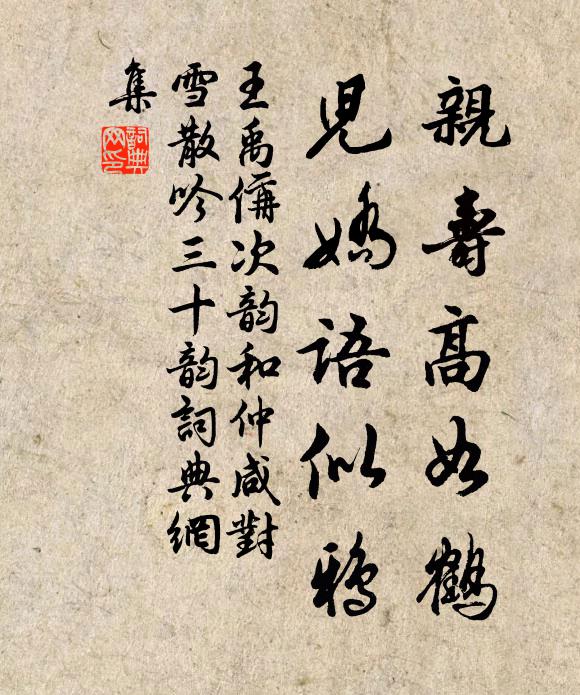 親壽高如鶴
兒嬌語似鴉
王禹偁次韵和仲咸對
雪散吟三十韵詞典網
集
詞典網印